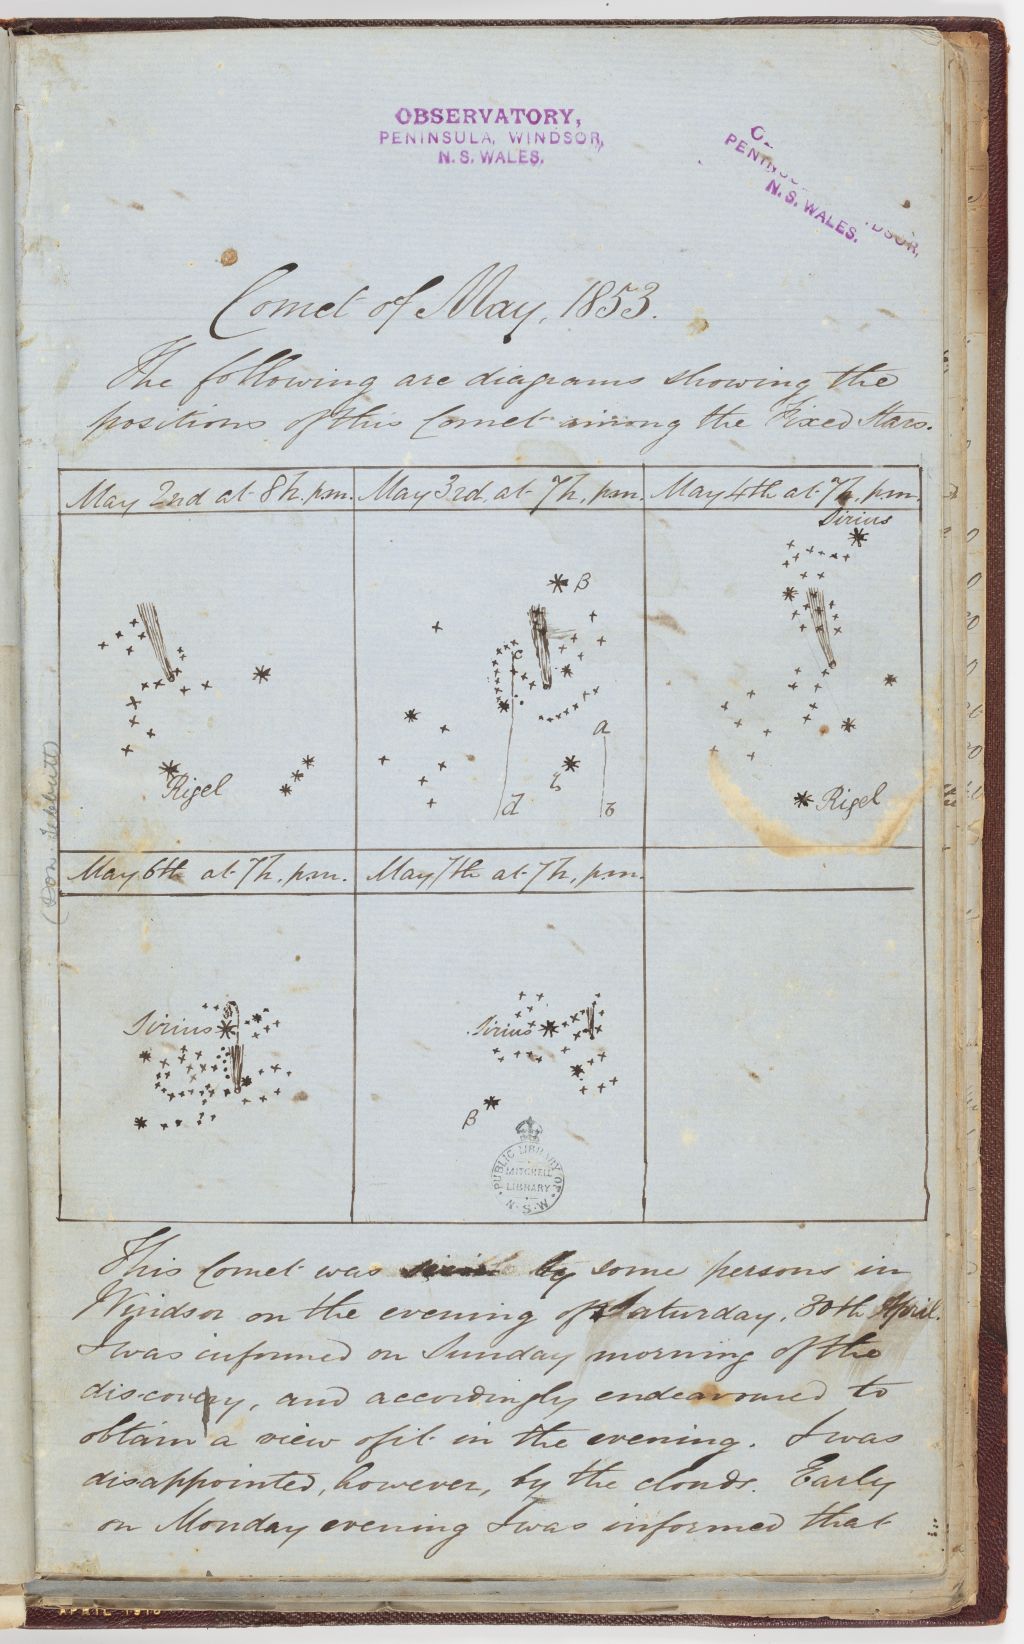 OBSERVATORY,
PENINSULA, WINDSOR,
N. S. WALES.
PENINSU
DSOR,
N. S. WALES.
Comet of May, 1853.
The following are diagrams showing the
positions of this Comet among the Fixed Stars.
May 2nd at 8h. p.m.
May 3rd, at 7h, p.m.
May 4th at 7h, p.m.
Sirius
β
c
a
Rigel
d
b
Rigel
May 6th at 7h, p.m.
May 7th at 7h, p.m.
Sirius
Sirius
β
PUBLIC LIBRARY OF
MITCHELL
LIBRARY
N.S.W
This Comet was by some persons in
Windsor on the evening of Saturday, 30th April.
I was informed on Sunday morning of the
discovery, and accordingly endeavoured to
obtain a view of it in the evening. I was
disappointed, however, by the clouds. Early
on Monday evening I was informed that
APRIL 1918